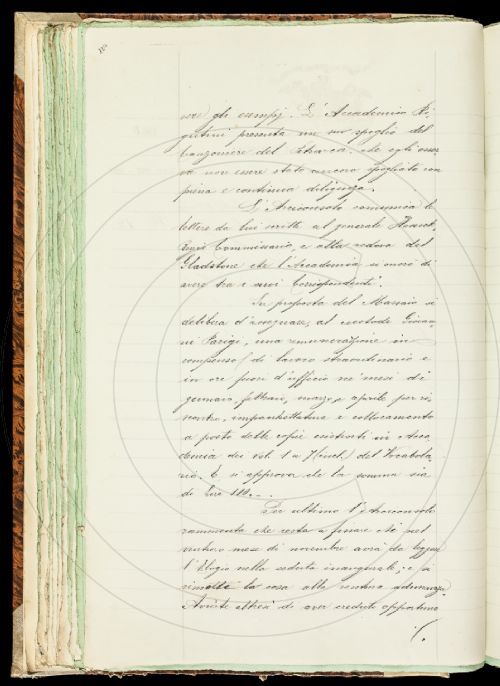 vere gli esempj. L'Accademico Ri-
gutini presenta un suo spoglio del
Canzoniere del Petrarca, che egli osser-
va non essere stato ancora spogliato con
piena e continua diligenza.
L'Arciconsolo comunica le
lettere da lui scritte al generale Heusch,
Regio Commissario, e alla vedova del
Gladstone che l'Accademia si onorò di
avere tra i suoi Corrispondenti.
Su proposta del Massaio si
delibera d'assegnare, al custode Giovan-
ni Parigi, una remunerazione in
compenso di lavoro straordinario e
in ore fuori d'ufficio ne' mesi di
gennaio, febbraio, marzo e aprile per ri-
scontro, impacchettatura e collocamento
a posto delle copie esistenti in Acca-
demia dei vol. 1 a 7 del Vocabola-
rio. E si approva che la somma sia
di Lire 110.
Per ultimo l'Arciconsolo
rammenta che resta a fissare chi nel
venturo mese di novembre avrà da leggere
l'Elogio nella seduta inaugurale; e si
rimette la cosa alla ventura adunanza.
Avverte altresì di aver creduto opportuno